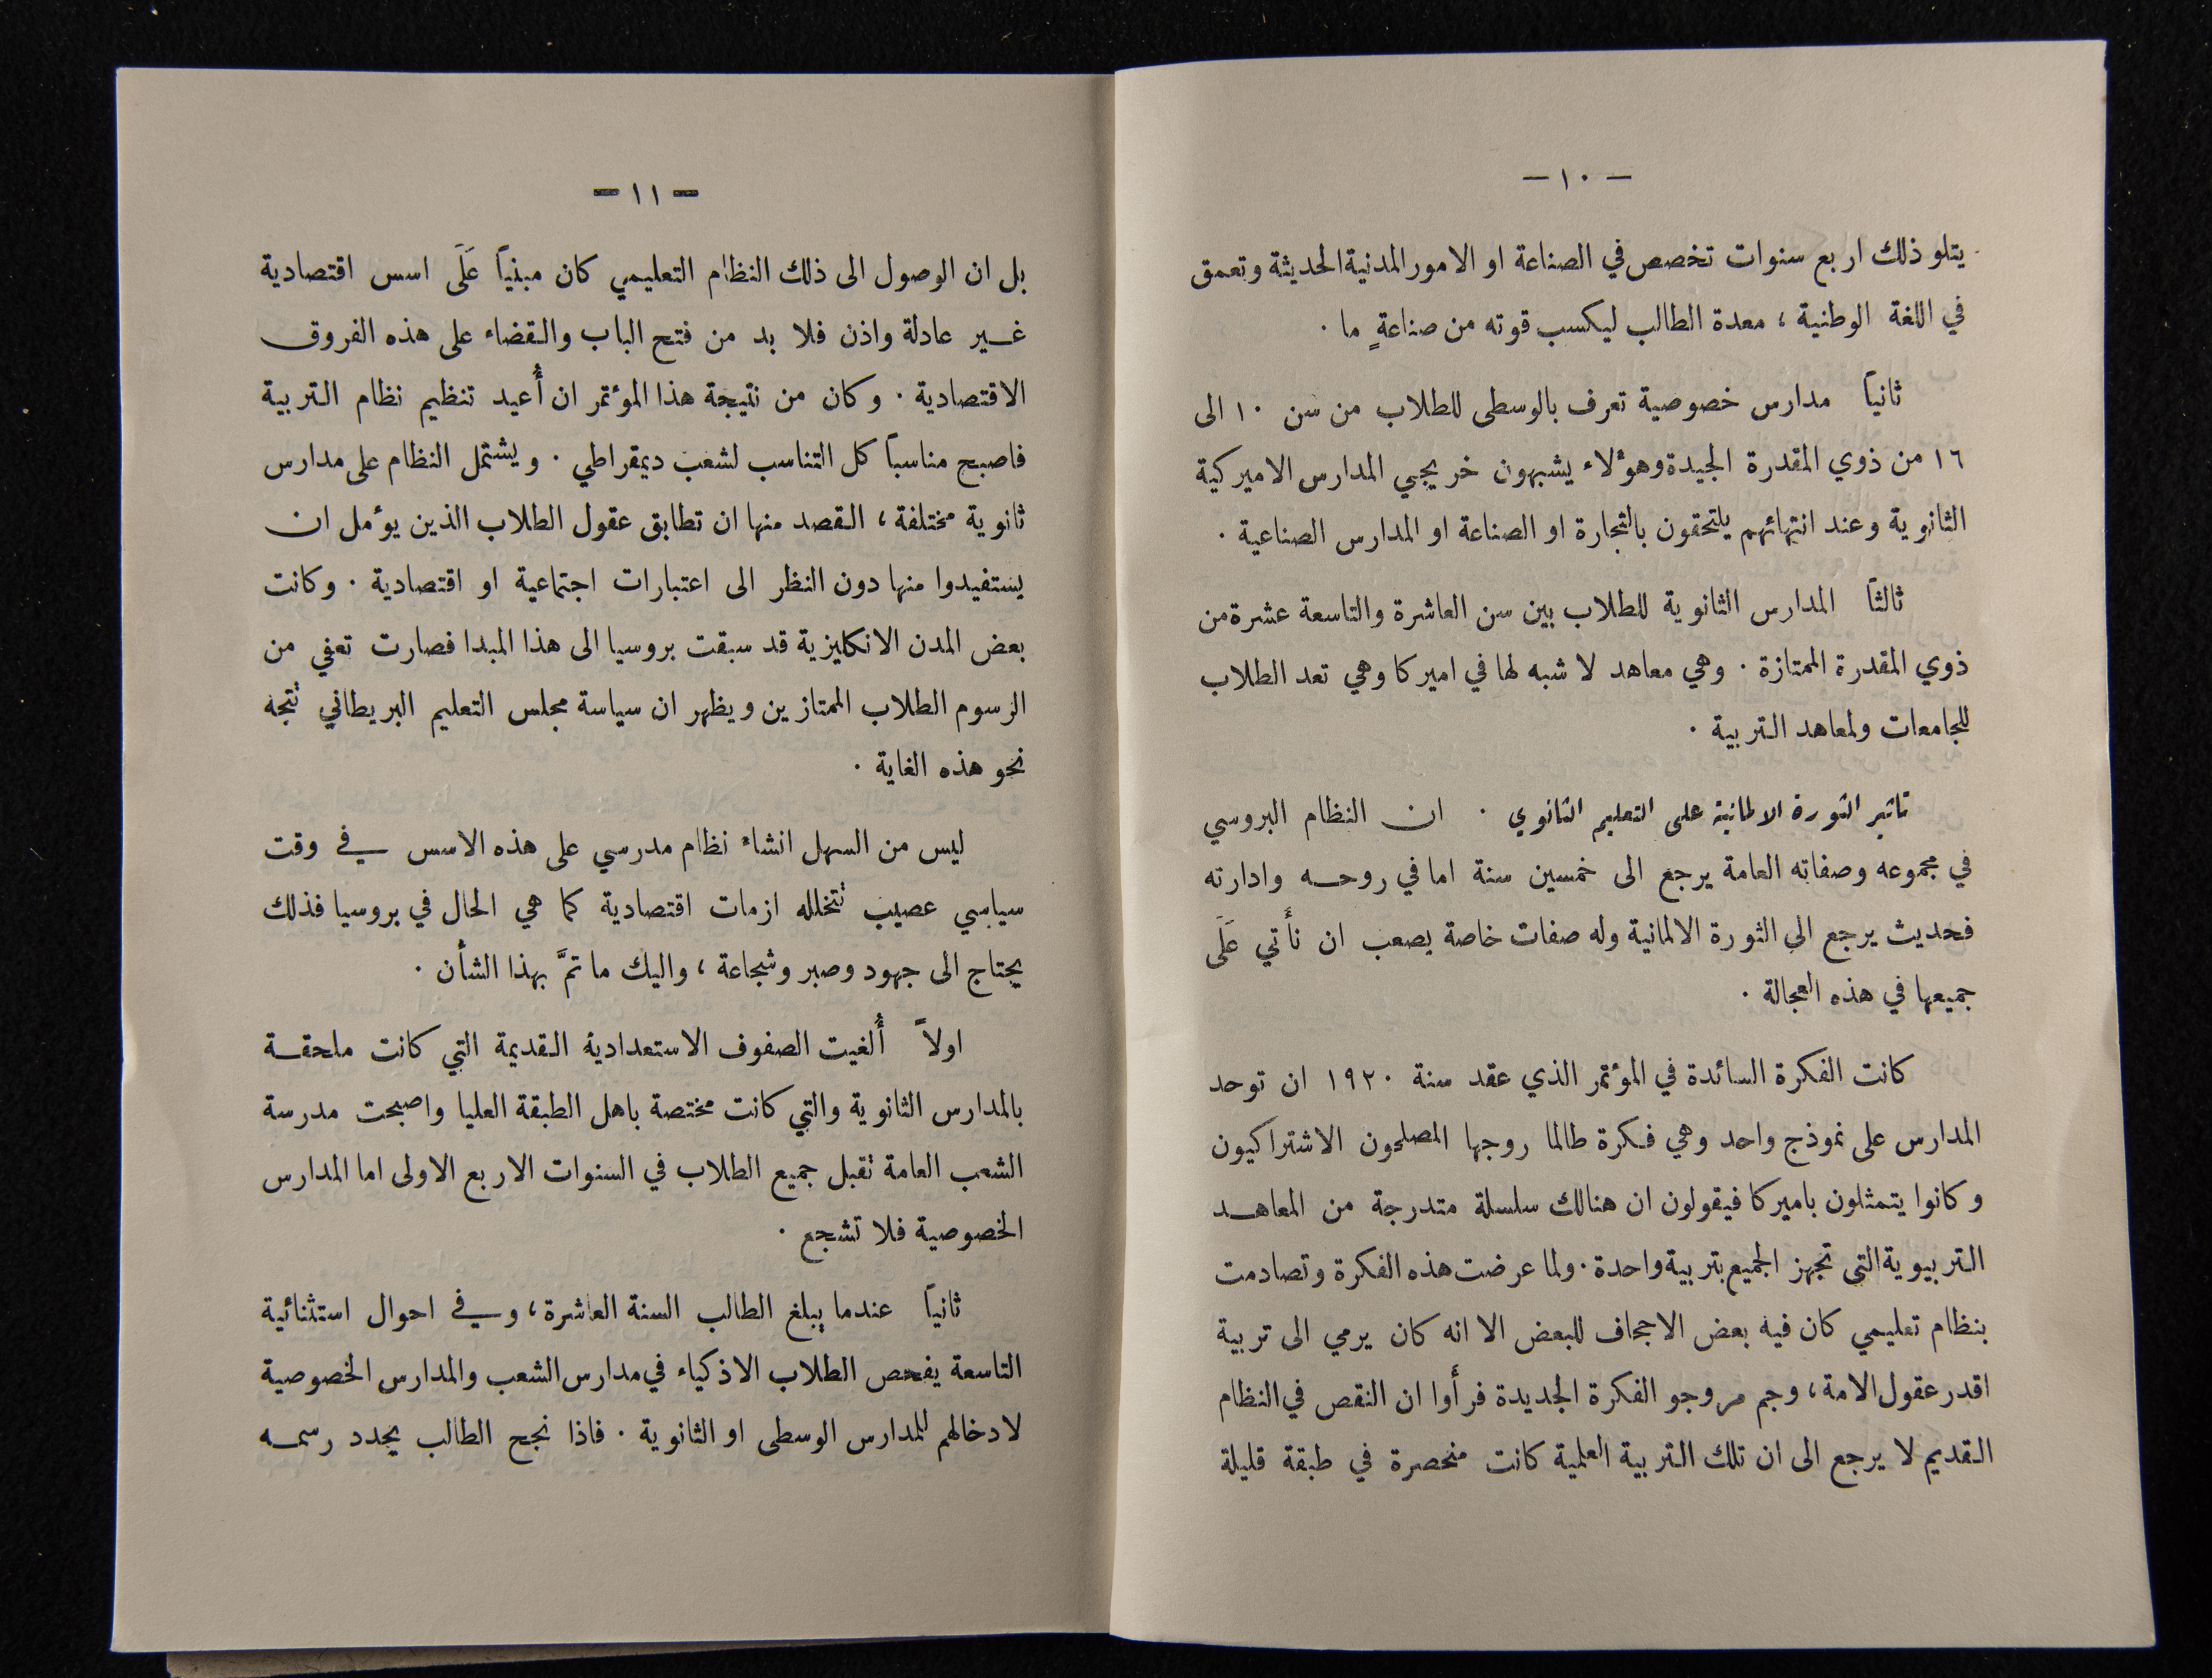 — ١٠ —
يتلو ذلك اربع سنوات تخصص في الصناعة او الامور المدنية الحديثة وتعمق
في اللغة الوطنية ، معدة الطالب ليكسب قوته من صناعةٍ ما .
ثانياً مدارس خصوصية تعرف بالوسطى للطلاب من سن ١٠ الى
١٦ من ذوي المقدرة الجيدة وهؤلاء يشبهون خريجي المدارس الاميركية
الثانوية وعند انتهائهم يلتحقون بالتجارة او الصناعة او المدارس الصناعية .
ثالثاً المدارس الثانوية للطلاب بين سن العاشرة والتاسعة عشرة من
ذوي المقدرة الممتازة . وهي معاهد لا شبه لها في اميركا وهي تعد الطلاب
للجامعات ولمعاهد التربية .
تاثير الثورة الالمانية على التعليم الثانوي . ان النظام البروسي
في مجموعه وصفاته العامة يرجع الى خمسين سنة اما في روحه وادارته
فحديث يرجع الى الثورة الالمانية وله صفات خاصة يصعب ان نأتي عَلَى
جميعها في هذه العجالة .
كانت الفكرة السائدة في المؤتمر الذي عقد سنة ١٩٢٠ ان توحد
المدارس على نموذج واحد وهي فكرة طالما روجها المصلحون الاشتراكيون
وكانوا يتمثلون باميركا فيقولون ان هنالك سلسلة متدرجة من المعاهد
التربيوية التي تجهز الجميع بتربية واحدة . ولما عرضت هذه الفكرة وتصادمت
بنظام تعليمي كان فيه بعض الاجحاف للبعض الا انه كان يرمي الى تربية
اقدر عقول الامة ، وجم مروجو الفكرة الجديدة فرأوا ان النقص في النظام
القديم لا يرجع الى ان تلك التربية العلمية كانت منحصرة في طبقة قليلة
— ١١ —
بل ان الوصول الى ذلك النظام التعليمي كان مبنياً عَلَى اسس اقتصادية
غير عادلة واذن فلا بد من فتح الباب والقضاء على هذه الفروق
الاقتصادية . وكان من نتيجة هذا المؤتمر ان أُعيد تنظيم نظام التربية
فاصبح مناسباً كل التناسب لشعب ديمقراطي . ويشتمل النظام على مدارس
ثانوية مختلفة ، القصد منها ان تطابق عقول الطلاب الذين يؤمل ان
يستفيدوا منها دون النظر الى اعتبارات اجتماعية او اقتصادية . وكانت
بعض المدن الانكليزية قد سبقت بروسيا الى هذا المبدا فصارت تعفي من
الرسوم الطلاب الممتازين ويظهر ان سياسة مجلس التعليم البريطاني تتجه
نحو هذه الغاية .
ليس من السهل انشاء نظام مدرسي على هذه الاسس في وقت
سياسي عصيب تتخلله ازمات اقتصادية كما هي الحال في بروسيا فذلك
يحتاج الى جهود وصبر وشجاعة ، واليك ما تمَّ بهذا الشأن .
اولاً أُلغيت الصفوف الاستعدادية القديمة التي كانت ملحقة
بالمدارس الثانوية والتي كانت مختصة باهل الطبقة العليا واصبحت مدرسة
الشعب العامة تقبل جميع الطلاب في السنوات الاربع الاولى اما المدارس
الخصوصية فلا تشجع .
ثانياً عندما يبلغ الطالب السنة العاشرة ، وفي احوال استثنائية
التاسعة يفحص الطلاب الاذكياء في مدارس الشعب والمدارس الخصوصية
لادخالهم للمدارس الوسطى او الثانوية . فاذا نجح الطالب يجدد رسمه